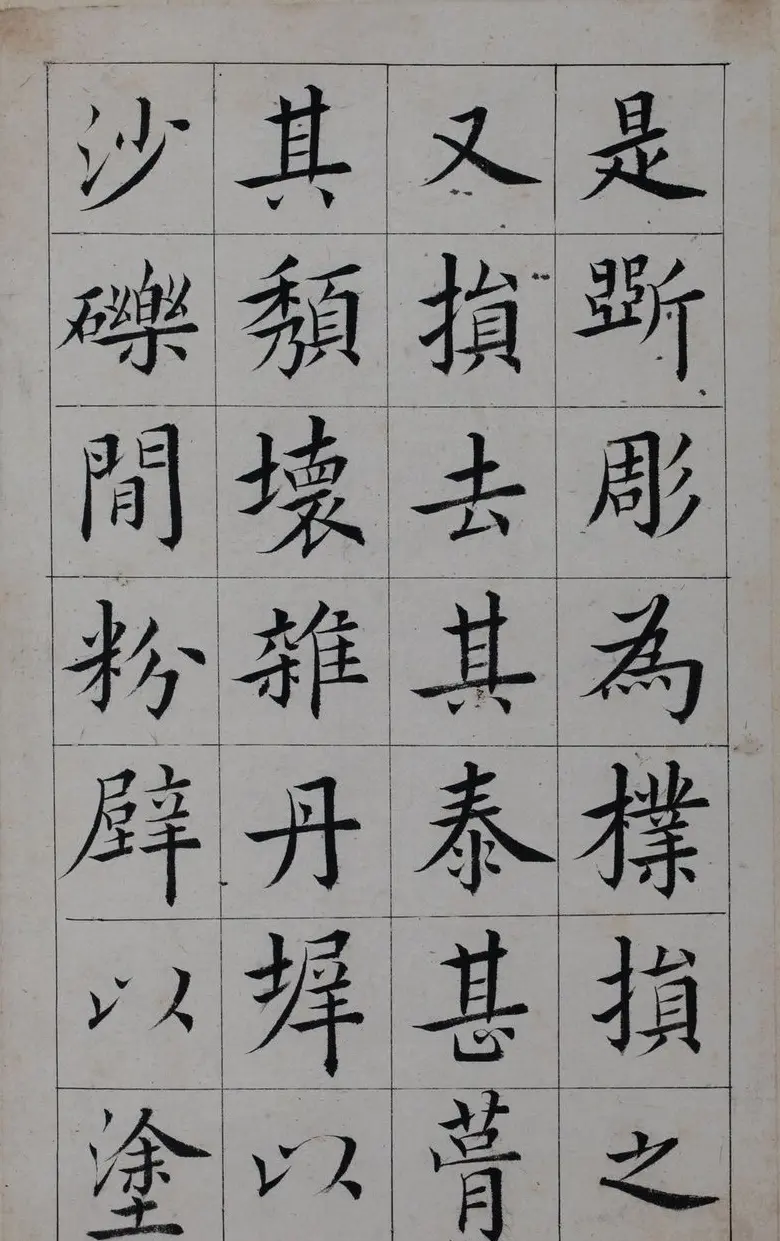 是斲彫為樸損之
又損去其泰甚葺
其頽壞雜丹墀以
沙礫閒粉壁以塗